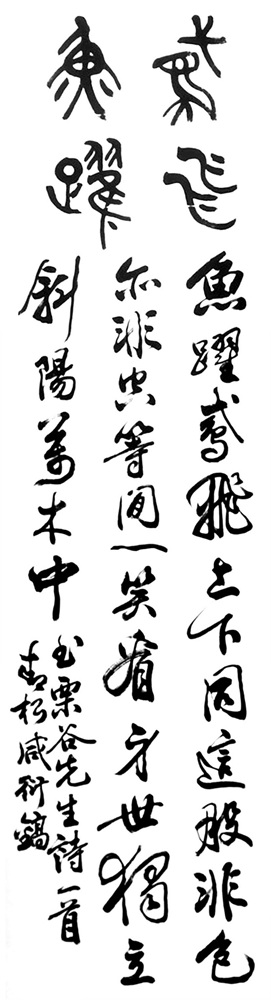 鳶飛
魚躍
魚躍鳶飛上下同這般非色
亦非空等間一笑看身世獨立
斜陽萬木中
書栗谷先生詩一首
青松咸衍鎬